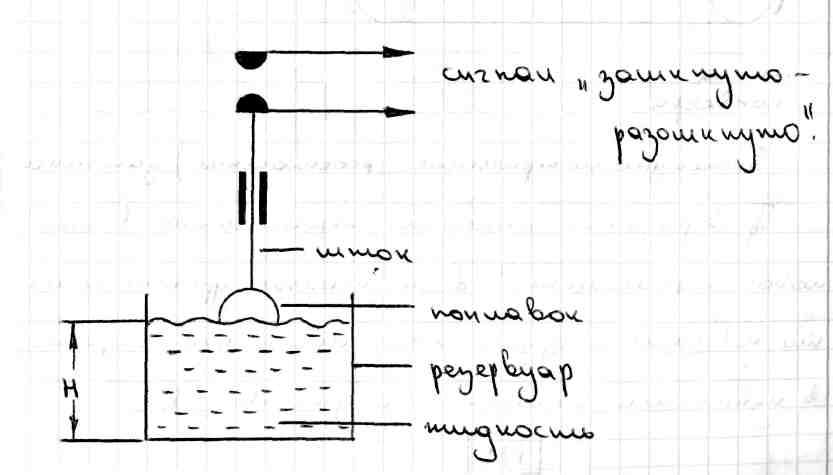 сигнал „замкнуто –
разомкнуто".
шток
поплавок
H
резервуар
жидкость